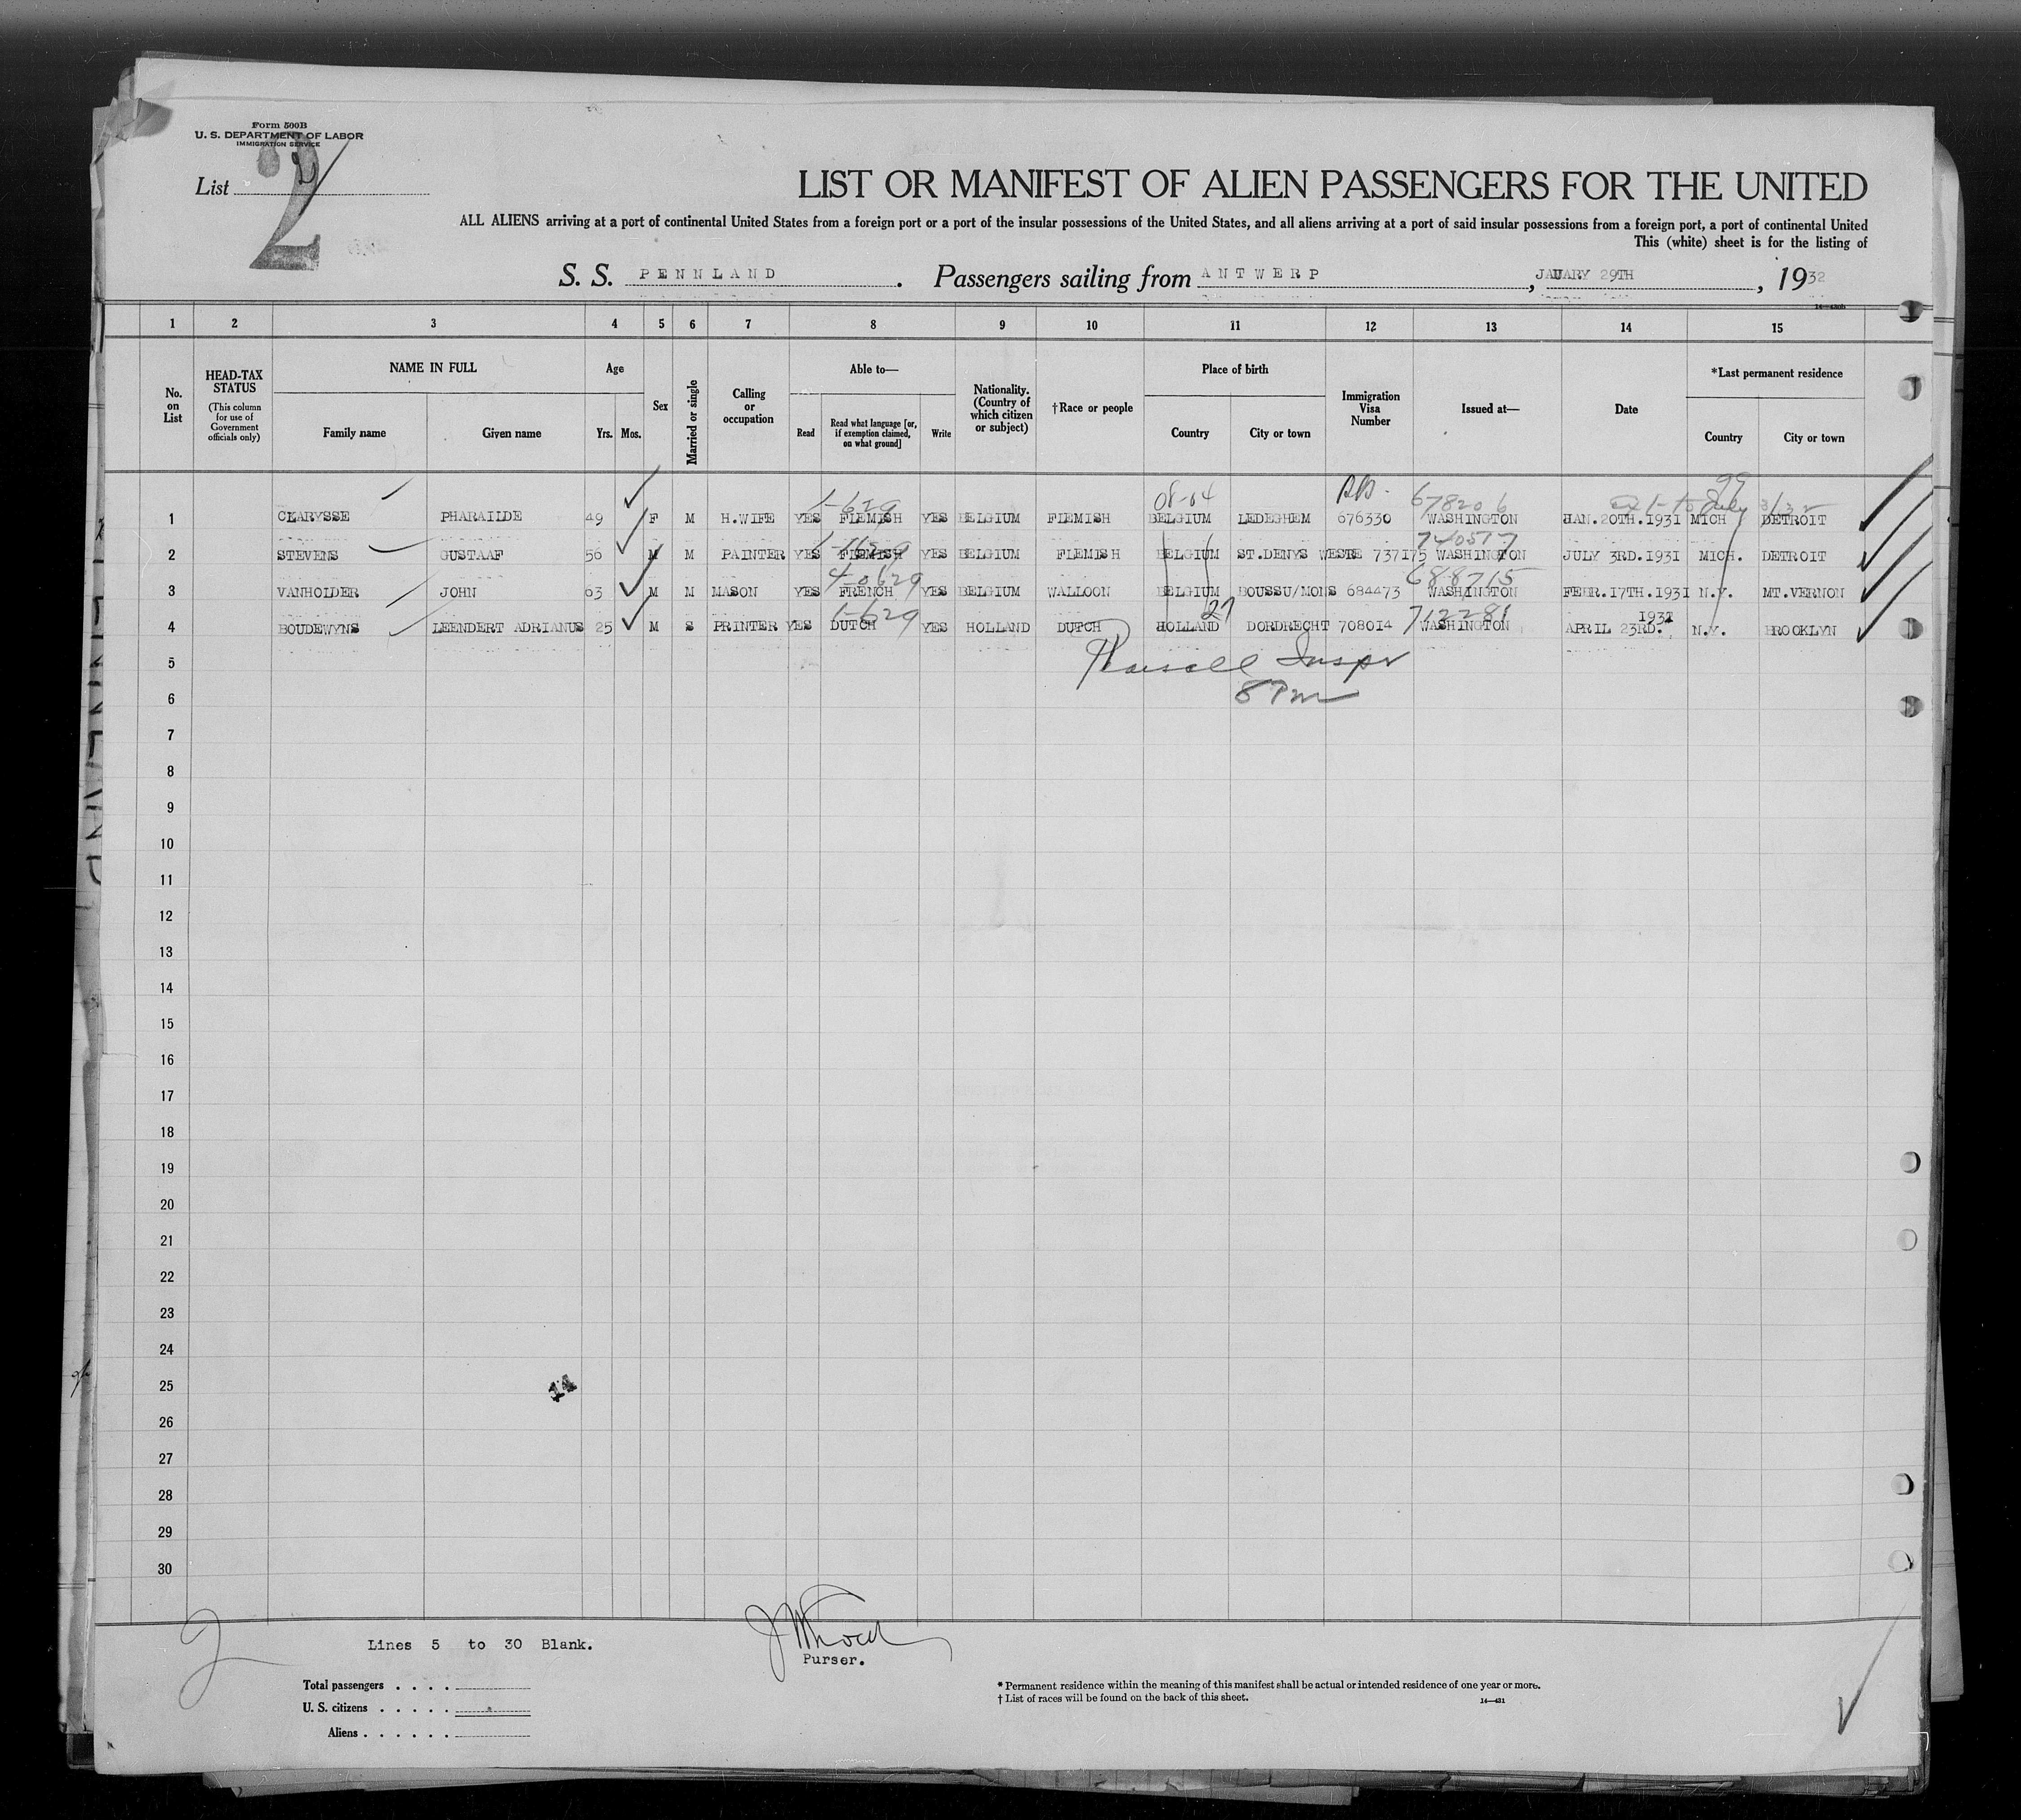 Form 500B
U. S. DEPARTMENT OF LABOR
IMMIGRATION SERVICE
List 2
LIST OR MANIFEST OF ALIEN PASSENGERS FOR THE UNITED
ALL ALIENS arriving at a port of continental United States from a foreign port or a port of the insular possessions of the United States, and all aliens arriving at a port of said insular possessions from a foreign port, a port of continental United
This (white) sheet is for the listing of
S. S. PENNLAND. Passengers sailing from ANTWERP, JAUARY 29TH, 1932
1 2 3 4 5 6 7 8 9 10 11 12 13 14 15
No. on List
HEAD-TAX STATUS
(This column for use of Government officials only)
NAME IN FULL
Family name Given name
Age
Yrs. Mos.
Sex
Married or single
Calling or occupation
Able to—
Read
Read what language [or, if exemption claimed, on what ground]
Write
Nationality. (Country of which citizen or subject)
†Race or people
Place of birth
Country City or town
Immigration Visa Number
Issued at—
Date
*Last permanent residence
Country City or town
99
1-629 08-04 678206
1 CLARYSSE PHARAILDE 49 F M H.WIFE YES FLEMISH YES BELGIUM FLEMISH BELGIUM LEDEGHEM 676330 WASHINGTON JAN.20TH.1931 MICH DETROIT
740577
2 STEVENS GUSTAAF 56 M M PAINTER YES FLEMISH YES BELGIUM FLEMISH BELGIUM ST.DENYS WESTRE 737175 WASHINGTON JULY 3RD.1931 MICH. DETROIT
4-0629 688715
3 VANHOLDER JOHN 63 M M MASON YES FRENCH YES BELGIUM WALLOON BELGIUM BOUSSU/MONS 684473 WASHINGTON FEBR.17TH.1931 N.Y. MT.VERNON
1-629 27 712281
4 BOUDEWYNS LEENDERT ADRIANUS 25 M S PRINTER YES DUTCH YES HOLLAND DUTCH HOLLAND DORDRECHT 708014 WASHINGTON APRIL 23RD. 1931 N.Y. BROOKLYN
5 Inspr
6 8 Pm
7
8
9
10
11
12
13
14
15
16
17
18
19
20
21
22
23
24
25
26
27
28
29
30
2
Lines 5 to 30 Blank.
Purser.
Total passengers . . . .
U. S. citizens . . . . .
Aliens . . . . . .
* Permanent residence within the meaning of this manifest shall be actual or intended residence of one year or more.
† List of races will be found on the back of this sheet.
14—431